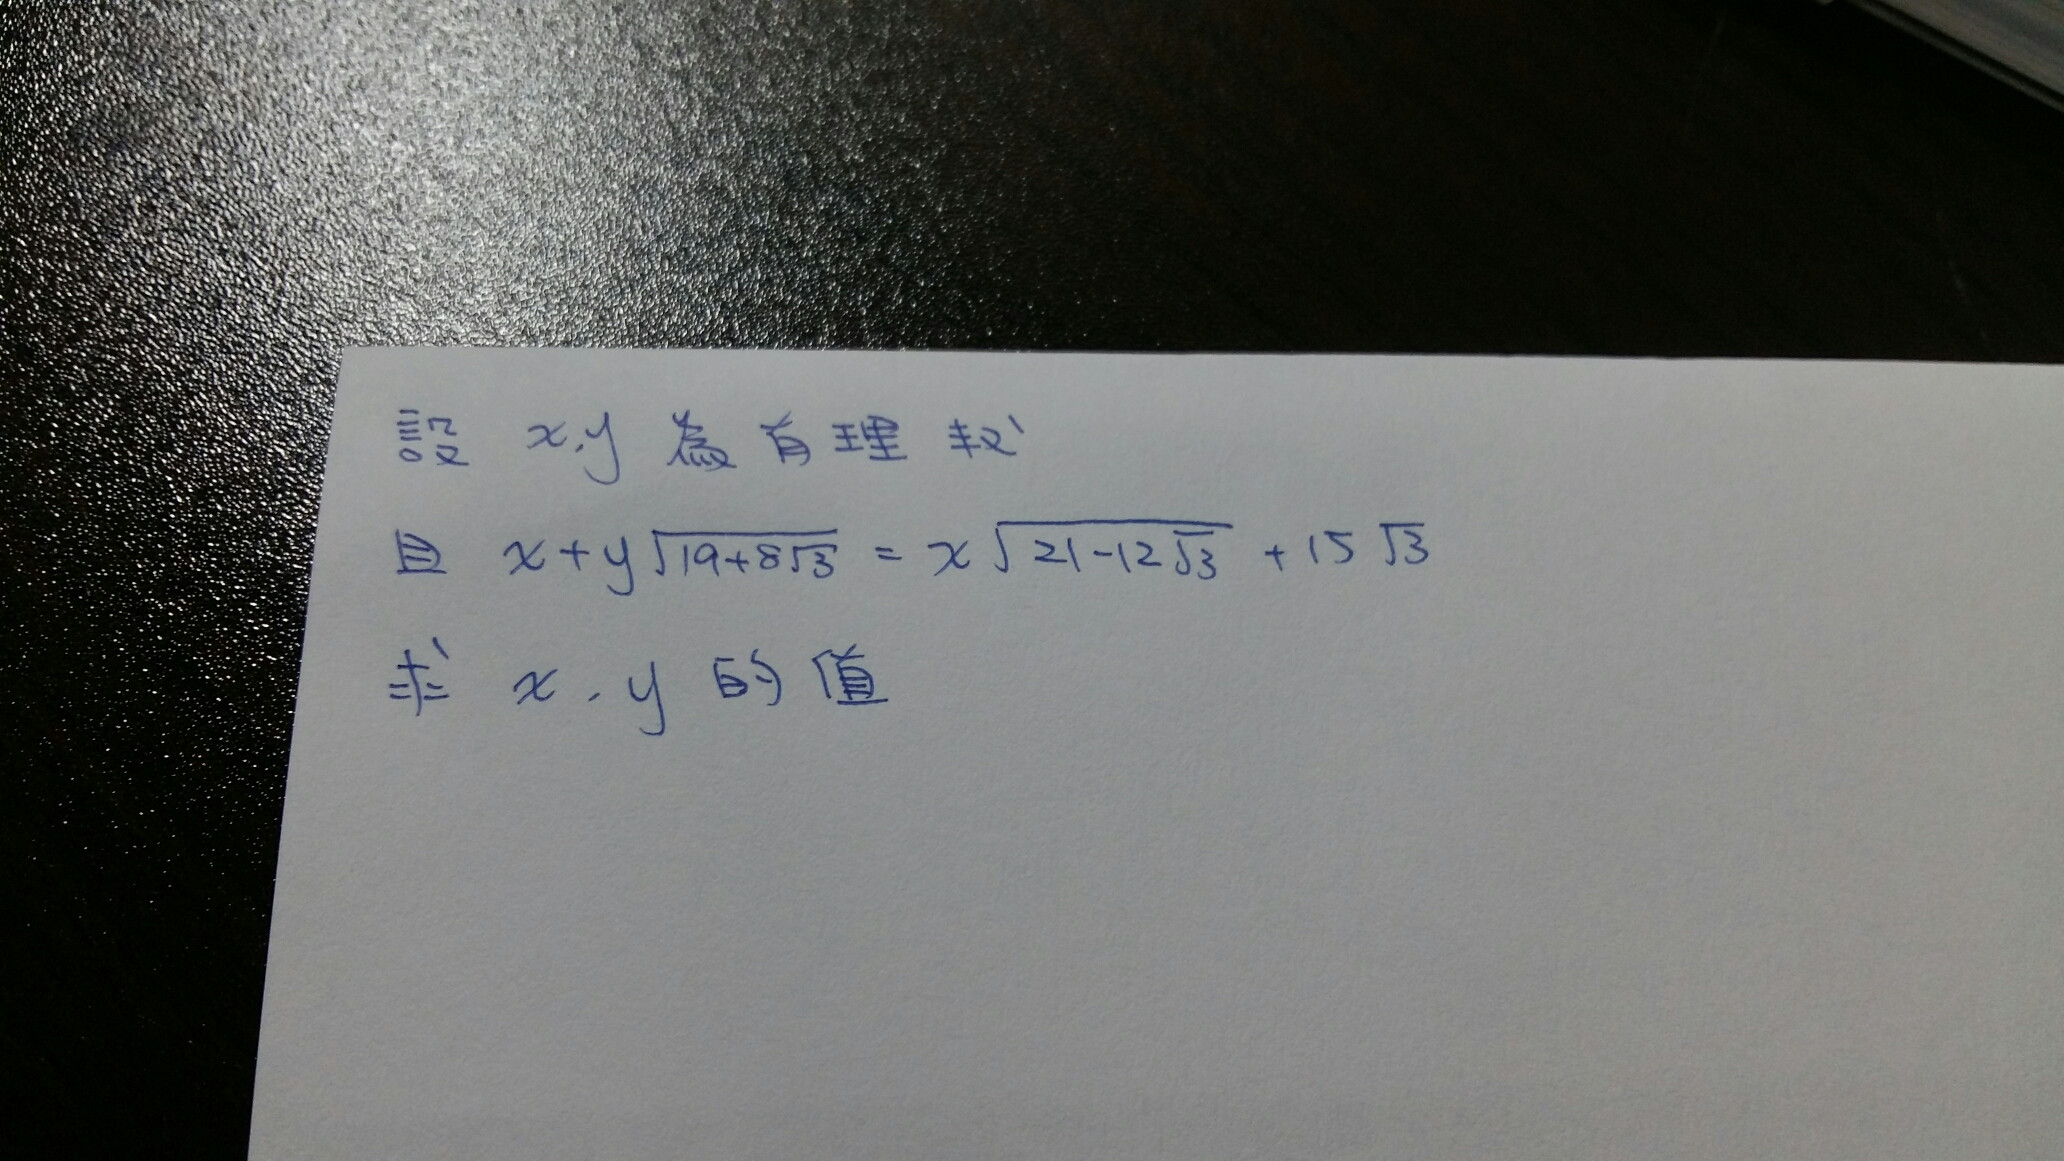 設 x,y 為有理数
且 x+y√(19+8√3) = x√(21-12√3) +15√3
求 x、y 的值